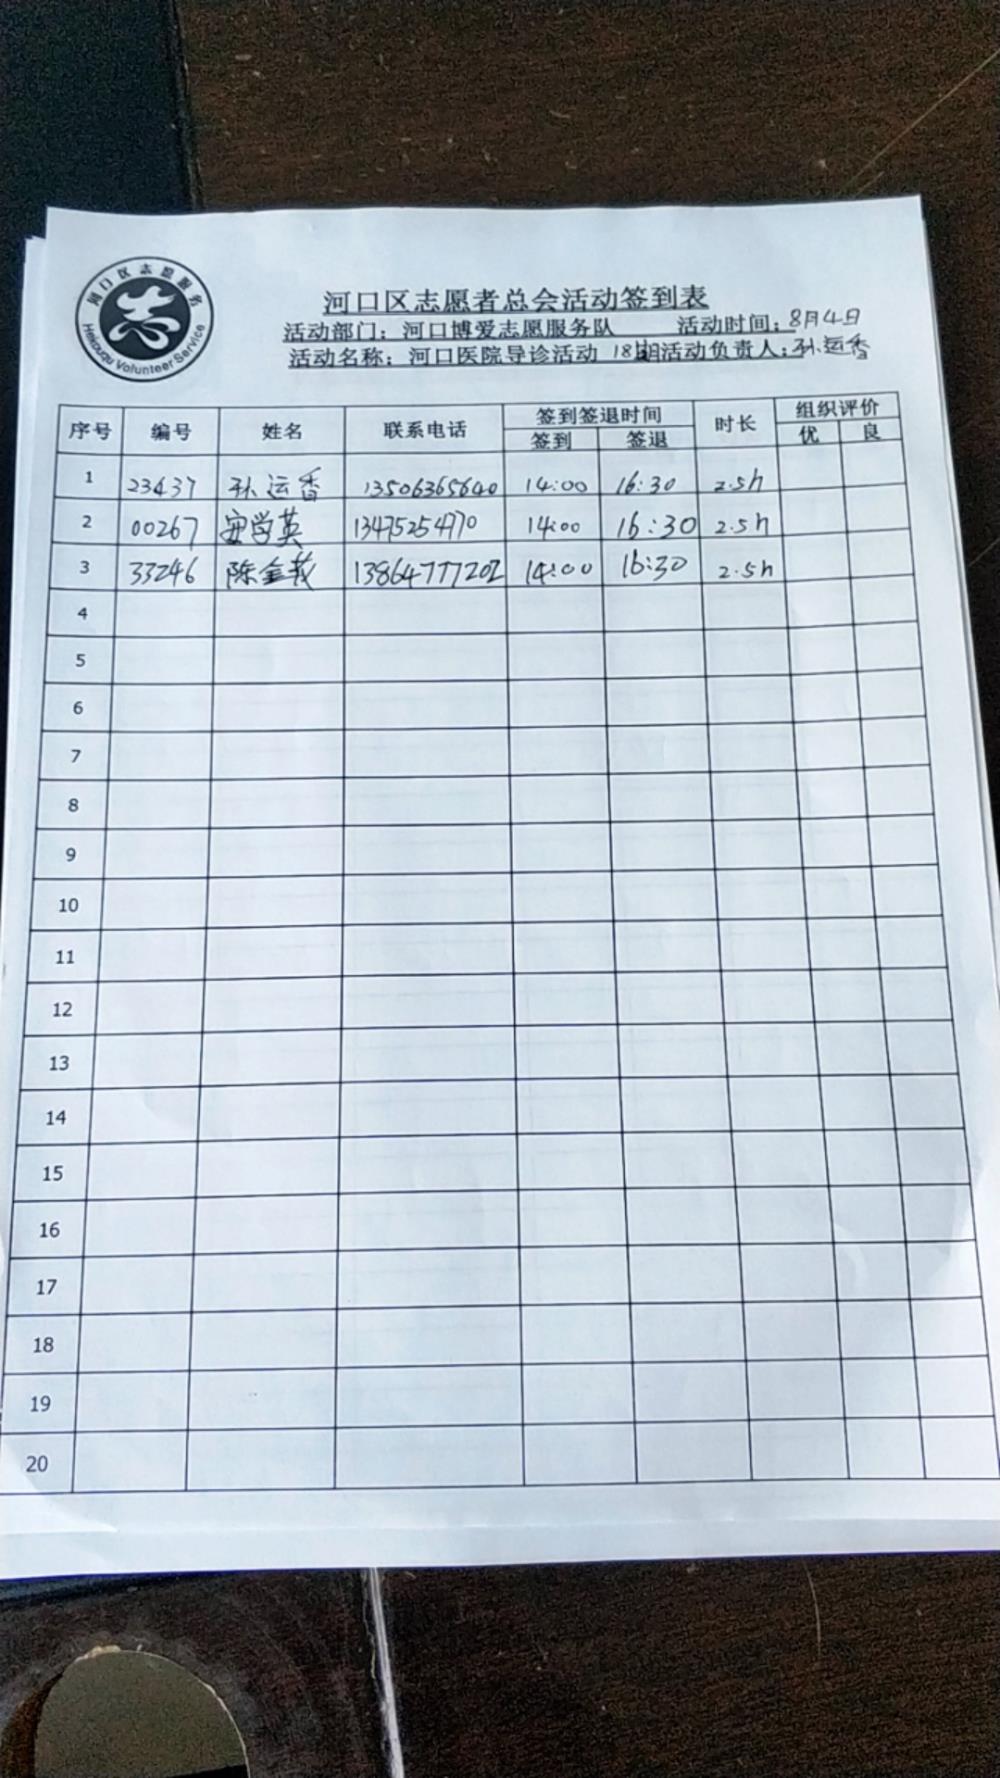 河口区志愿服务
Hekouqu Volunteer Service
河口区志愿者总会活动签到表
活动部门：河口博爱志愿服务队 活动时间：8月4日
活动名称：河口医院导诊活动 18期活动负责人：孙运香
序号 编号 姓名 联系电话 签到签退时间 时长 组织评价
签到 签退 优 良
1 23437 孙运香 13506365640 14:00 16:30 2.5h
2 00267 安学英 13475254770 14:00 16:30 2.5h
3 33246 陈金 13864777202 14:00 16:30 2.5h
4
5
6
7
8
9
10
11
12
13
14
15
16
17
18
19
20